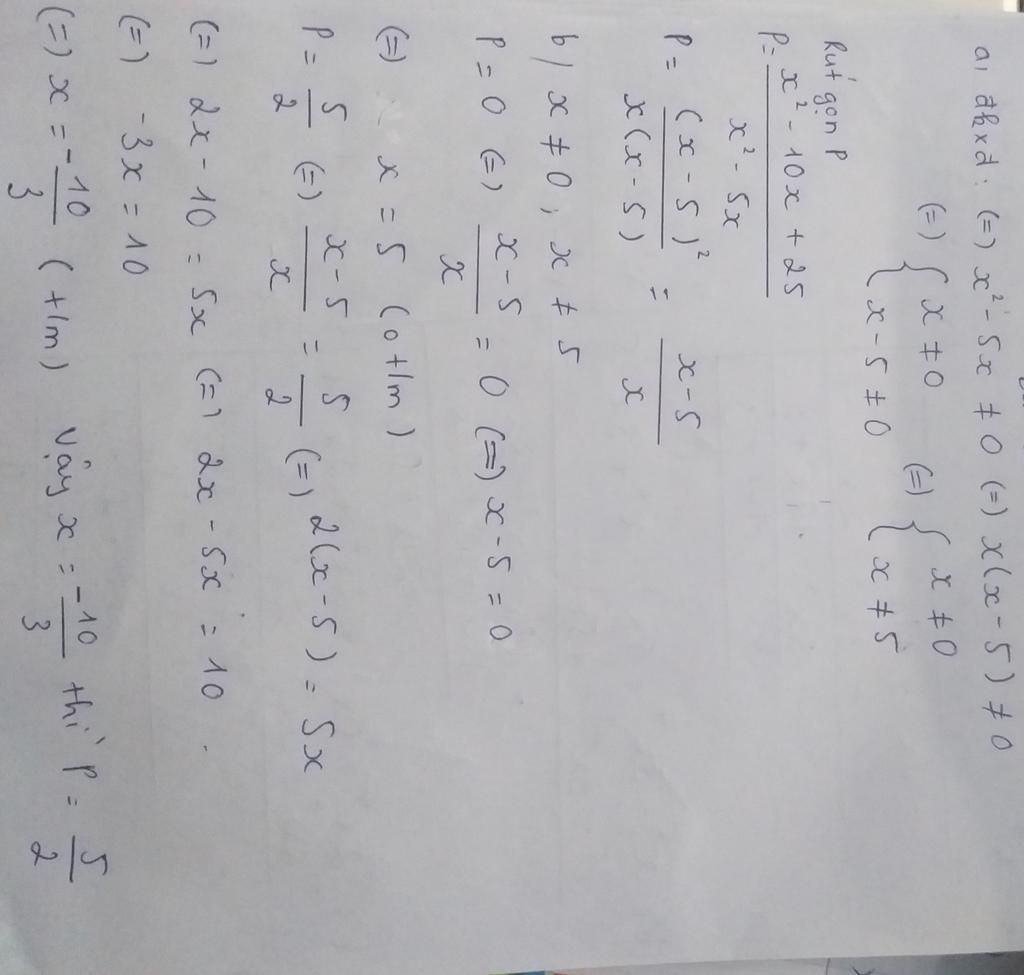 a, đkxđ: (=) x² - 5x ≠ 0 (=) x(x - 5) ≠ 0
(=) { x ≠ 0 (=) { x ≠ 0
x - 5 ≠ 0 x ≠ 5
Rút gọn P
P = x² - 10x + 25 / x² - 5x
P = (x - 5)² / x(x - 5) = x - 5 / x
b) x ≠ 0, x ≠ 5
P = 0 (=) x - 5 / x = 0 (=) x - 5 = 0
(=) x = 5 (o t/m)
P = 5/2 (=) x - 5 / x = 5/2 (=) 2(x - 5) = 5x
(=) 2x - 10 = 5x (=) 2x - 5x = 10
(=) -3x = 10
(=) x = -10/3 (t/m) Vậy x = -10/3 thì P = 5/2